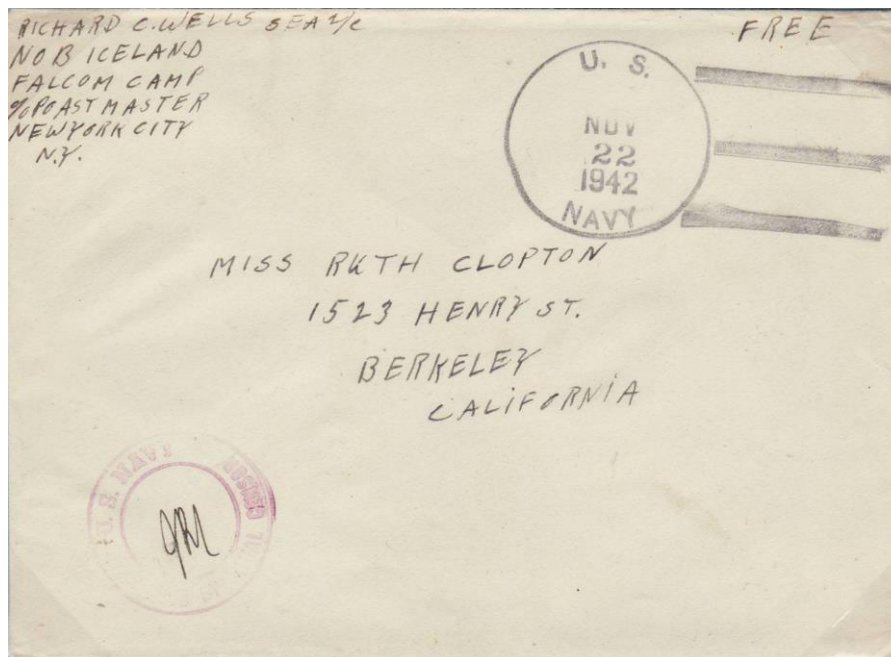 RICHARD C. WELLS SEA 2/C
NOB ICELAND
FALCOM CAMP
℅ POASTMASTER
NEWYORK CITY
N.Y.
FREE
U. S.
NOV
22
1942
NAVY
MISS RUTH CLOPTON
1523 HENRY ST.
BERKELEY
CALIFORNIA
U. S. NAVY